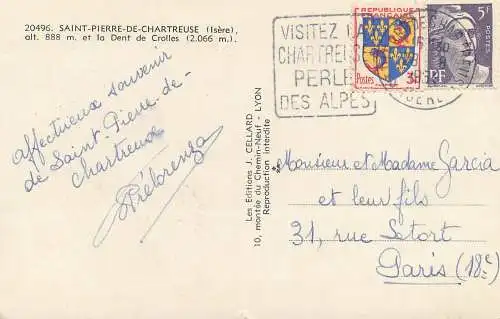 20496. SAINT-PIERRE-DE-CHARTREUSE (Isère),
alt. 888 m. et la Dent de Crolles (2.066 m.).
affectueux souvenir
de Saint-Pierre-de-
chartreuse
Les Editions J. CELLARD - LYON
10, montée du Chemin-Neuf -
Reproduction interdite
VISITEZ LA
CHARTREUSE
PERLE
DES ALPES
REPUBLIQUE
FRANÇAISE
Postes
5f
RF
ISERE
Monsieur et Madame Garcia
et leur fils
31, rue Letort
Paris (18e)